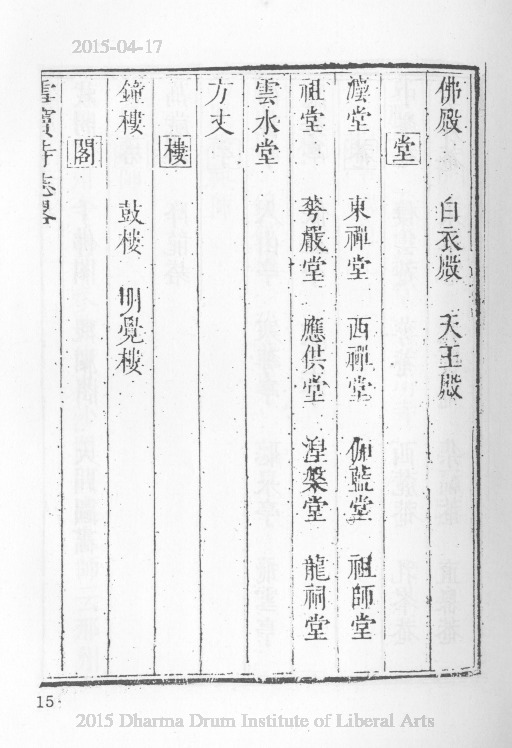 2015-04-17
佛殿 白衣殿 天王殿
堂
法堂 東禪堂 西禪堂 伽藍堂 祖師堂
祖堂 華嚴堂 應供堂 涅槃堂 龍祠堂
雲水堂
方丈
樓
鐘樓 鼓樓 明覺樓
閣
雪竇寺志畧
15
2015 Dharma Drum Institute of Liberal Arts